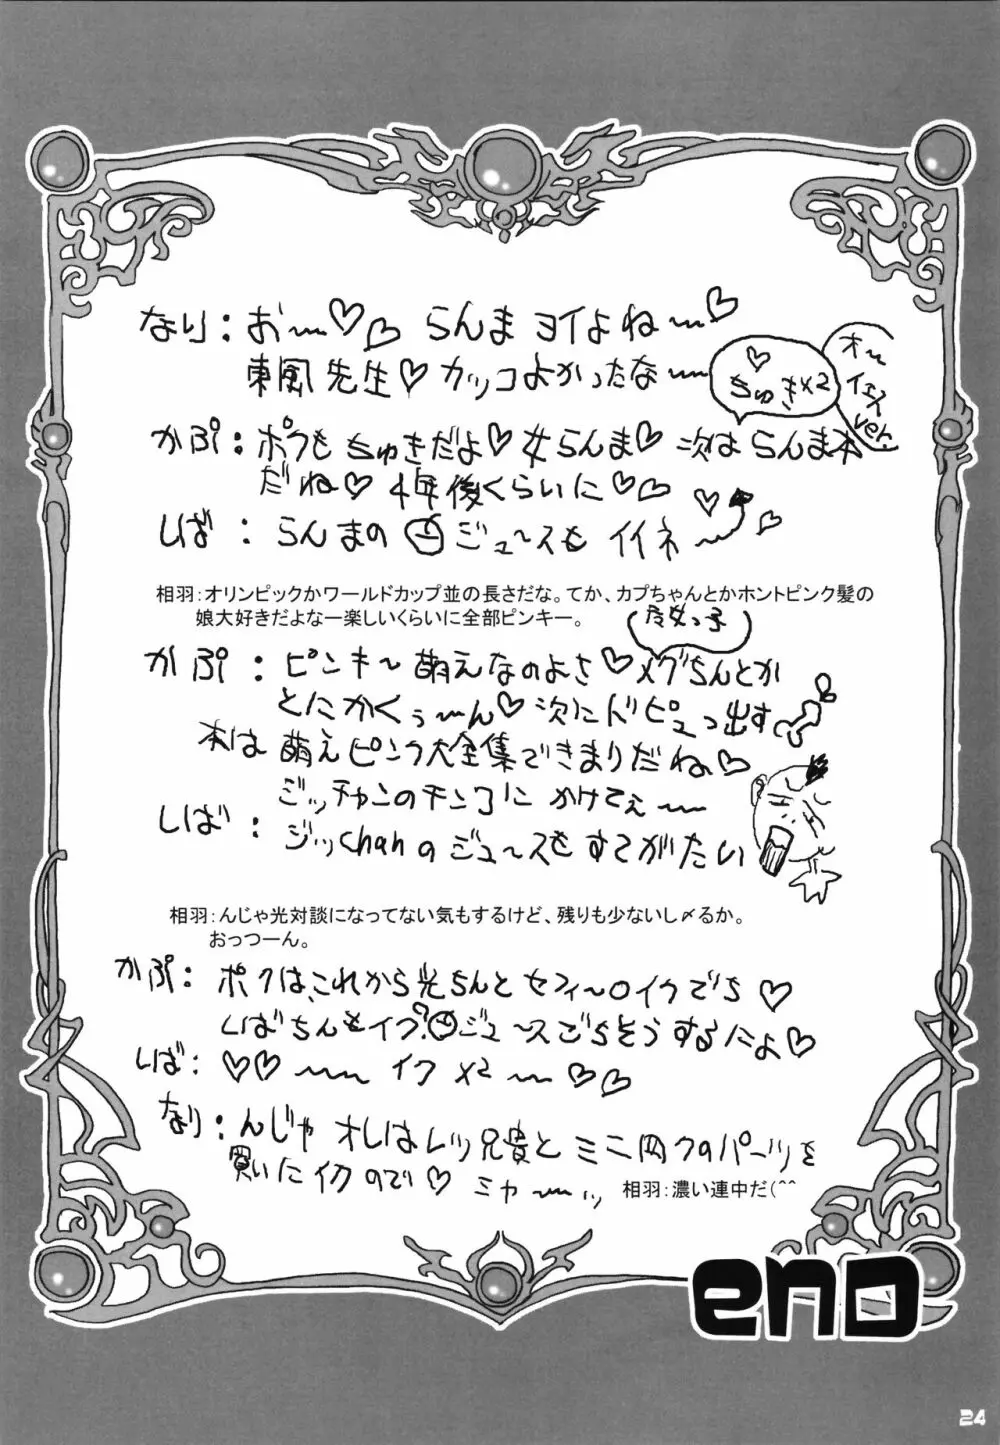 なり：お〜♡♡ らんま ヨイよね〜
東風先生♡カッコよかったな〜
♡ちゅき×2
オ〜イェスver.
かぷ：ボクもちゅきだよ♡女らんま♡次はらんま本
だね♡4年後くらいに♡♡
しば：らんまの ジュ〜スも イイネ〜
相羽：オリンピックかワールドカップ並の長さだな。てか、カプちゃんとかホントピンク髪の
娘大好きだよなー楽しいくらいに全部ピンキー。
かぷ：ピンキ〜萌えなのよさ♡メグちんとか
とにかくぅ〜ん♡次にドピュっ出す
本は萌えピンク大全集できまりだね♡
ジッチャンのチンコに かけてぇ〜
しば：ジッchanのジュ〜スもすてがたい
相羽：んじゃ光対談になってない気もするけど、残りも少ないし〆るか。
おっつーん。
かぷ：ボクは、これから光ちんと セフィ〜ロイクでち♡
しばちんもイク?ジュ〜スごちそうするにょ♡
しば：♡♡〜 イク×2〜♡♡
なり：んじゃ オレはレツ兄貴と ミニ四クのパーツを
買いにイクので♡ ミャ〜ッ
相羽：濃い連中だ(^^
end
24